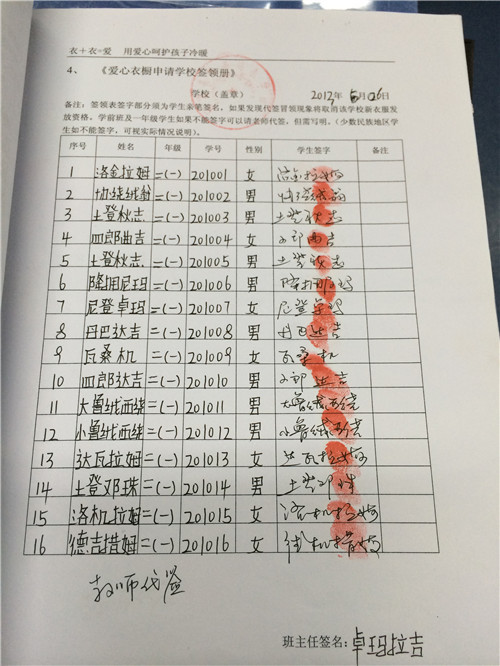 衣+衣=爱 用爱心呵护孩子冷暖
4、 《爱心衣橱申请学校签领册》
学校(盖章) 2013年5月06日
备注:签领表签字部分须为学生亲笔签名,如果发现代签冒领现象将取消该学校新衣服发
放资格。学前班及一年级学生如果不能签字可以请老师代签,但需写明。(少数民族地区学
生如不能签字,可视实际情况说明)。
序号 姓名 年级 学号 性别 学生签字 备注
1 洛金拉姆 二(一) 201001 女 洛金拉姆
2 切绕绒翁 二(一) 201002 男
3 土登秋志 二(一) 201003 男 土登秋志
4 四郎曲吉 二(一) 201004 女 四郎曲吉
5 土登秋志 二(一) 201005 男 土登秋志
6 降拥尼玛 二(一) 201006 男 降拥尼玛
7 尼登卓玛 二(一) 201007 女 尼登卓玛
8 丹巴达吉 二(一) 201008 男 丹巴达吉
9 瓦桑机 二(一) 201009 女 瓦桑机
10 四郎达吉 二(一) 201010 男 四郎达吉
11 大鲁绒西绕 二(一) 201011 男 大鲁绒西绕
12 小鲁绒西绕 二(一) 201012 男 小鲁绒西绕
13 达瓦拉姆 二(一) 201013 女 达瓦拉姆
14 土登邓珠 二(一) 201014 男 土登邓珠
15 洛机拉姆 二(一) 201015 女 洛机拉姆
16 德吉措姆 二(一) 201016 女
教师代签
班主任签名:卓玛拉吉